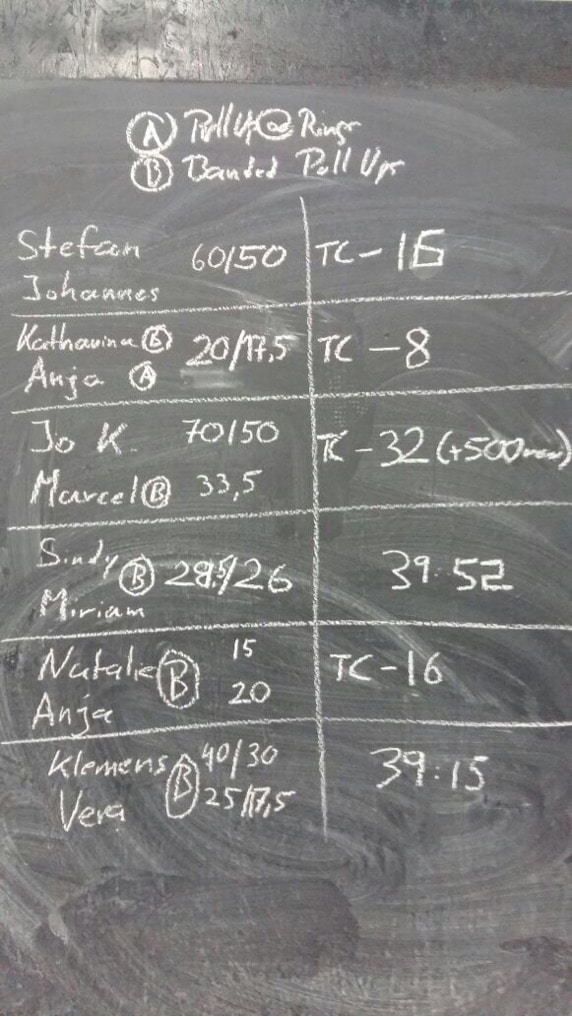 Ⓐ Pull Up @ Rings
Ⓑ Banded Pull Ups
Stefan 60/50 TC-16
Johannes
Katharina Ⓑ 20/17,5 TC -8
Anja Ⓐ
Jo K. 70/50 TC -32 (+500m row)
Marcel Ⓑ 33,5
Sindy Ⓑ 28,5/26 39:52
Miriam
Natalie Ⓑ 15 TC-16
Anja 20
Klemens Ⓑ 40/30 39:15
Vera 25/17,5